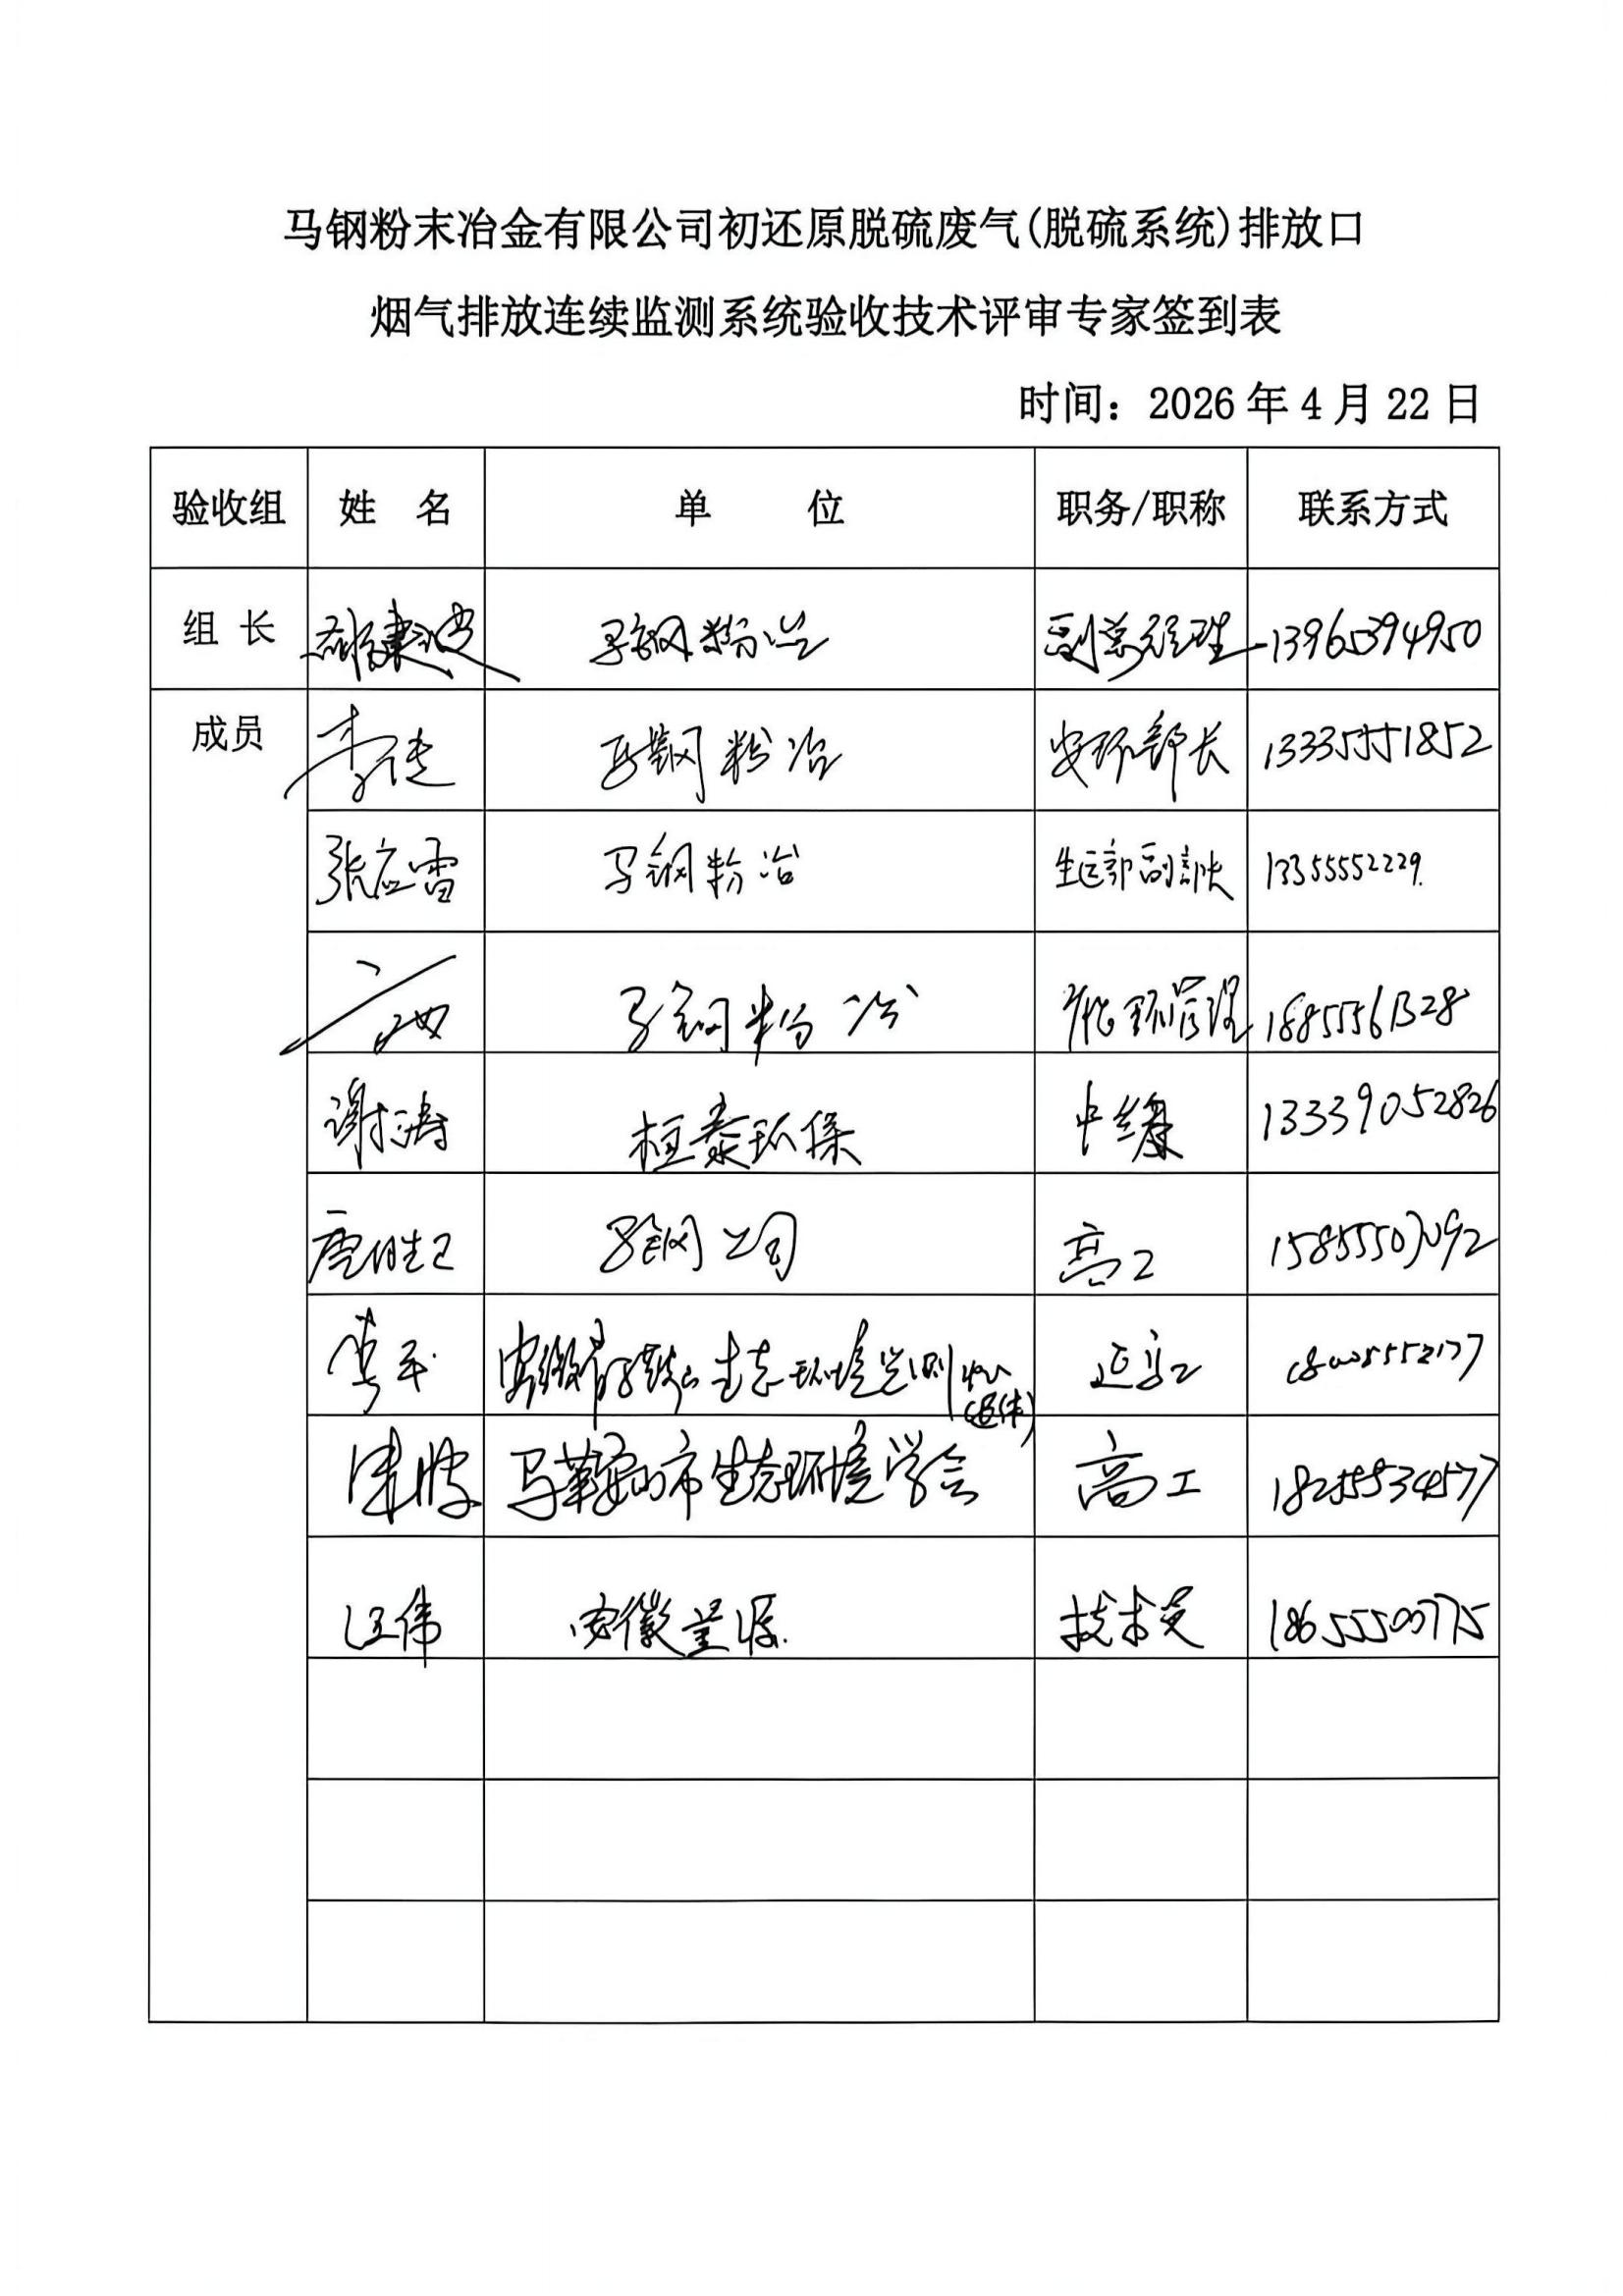 马钢粉末冶金有限公司初还原脱硫废气(脱硫系统)排放口
烟气排放连续监测系统验收技术评审专家签到表
时间：2026年4月22日
验收组 姓 名 单 位 职务/职称 联系方式
组 长 马钢粉冶 副总经理 13965394950
成员 李 马钢粉冶 安环部长 13335551852
张应雷 马钢粉冶 生运部副部长 13355552229
马钢粉冶 环管理 18855561328
谢涛 桓泰环保 13339052826
唐胜卫 马钢公司 高工
李平 安徽省马鞍山生态环境监测中心(退休) 正高工
马鞍山市生态环境学会 高工 18255534577
汪伟 安徽 技术员 18655500775